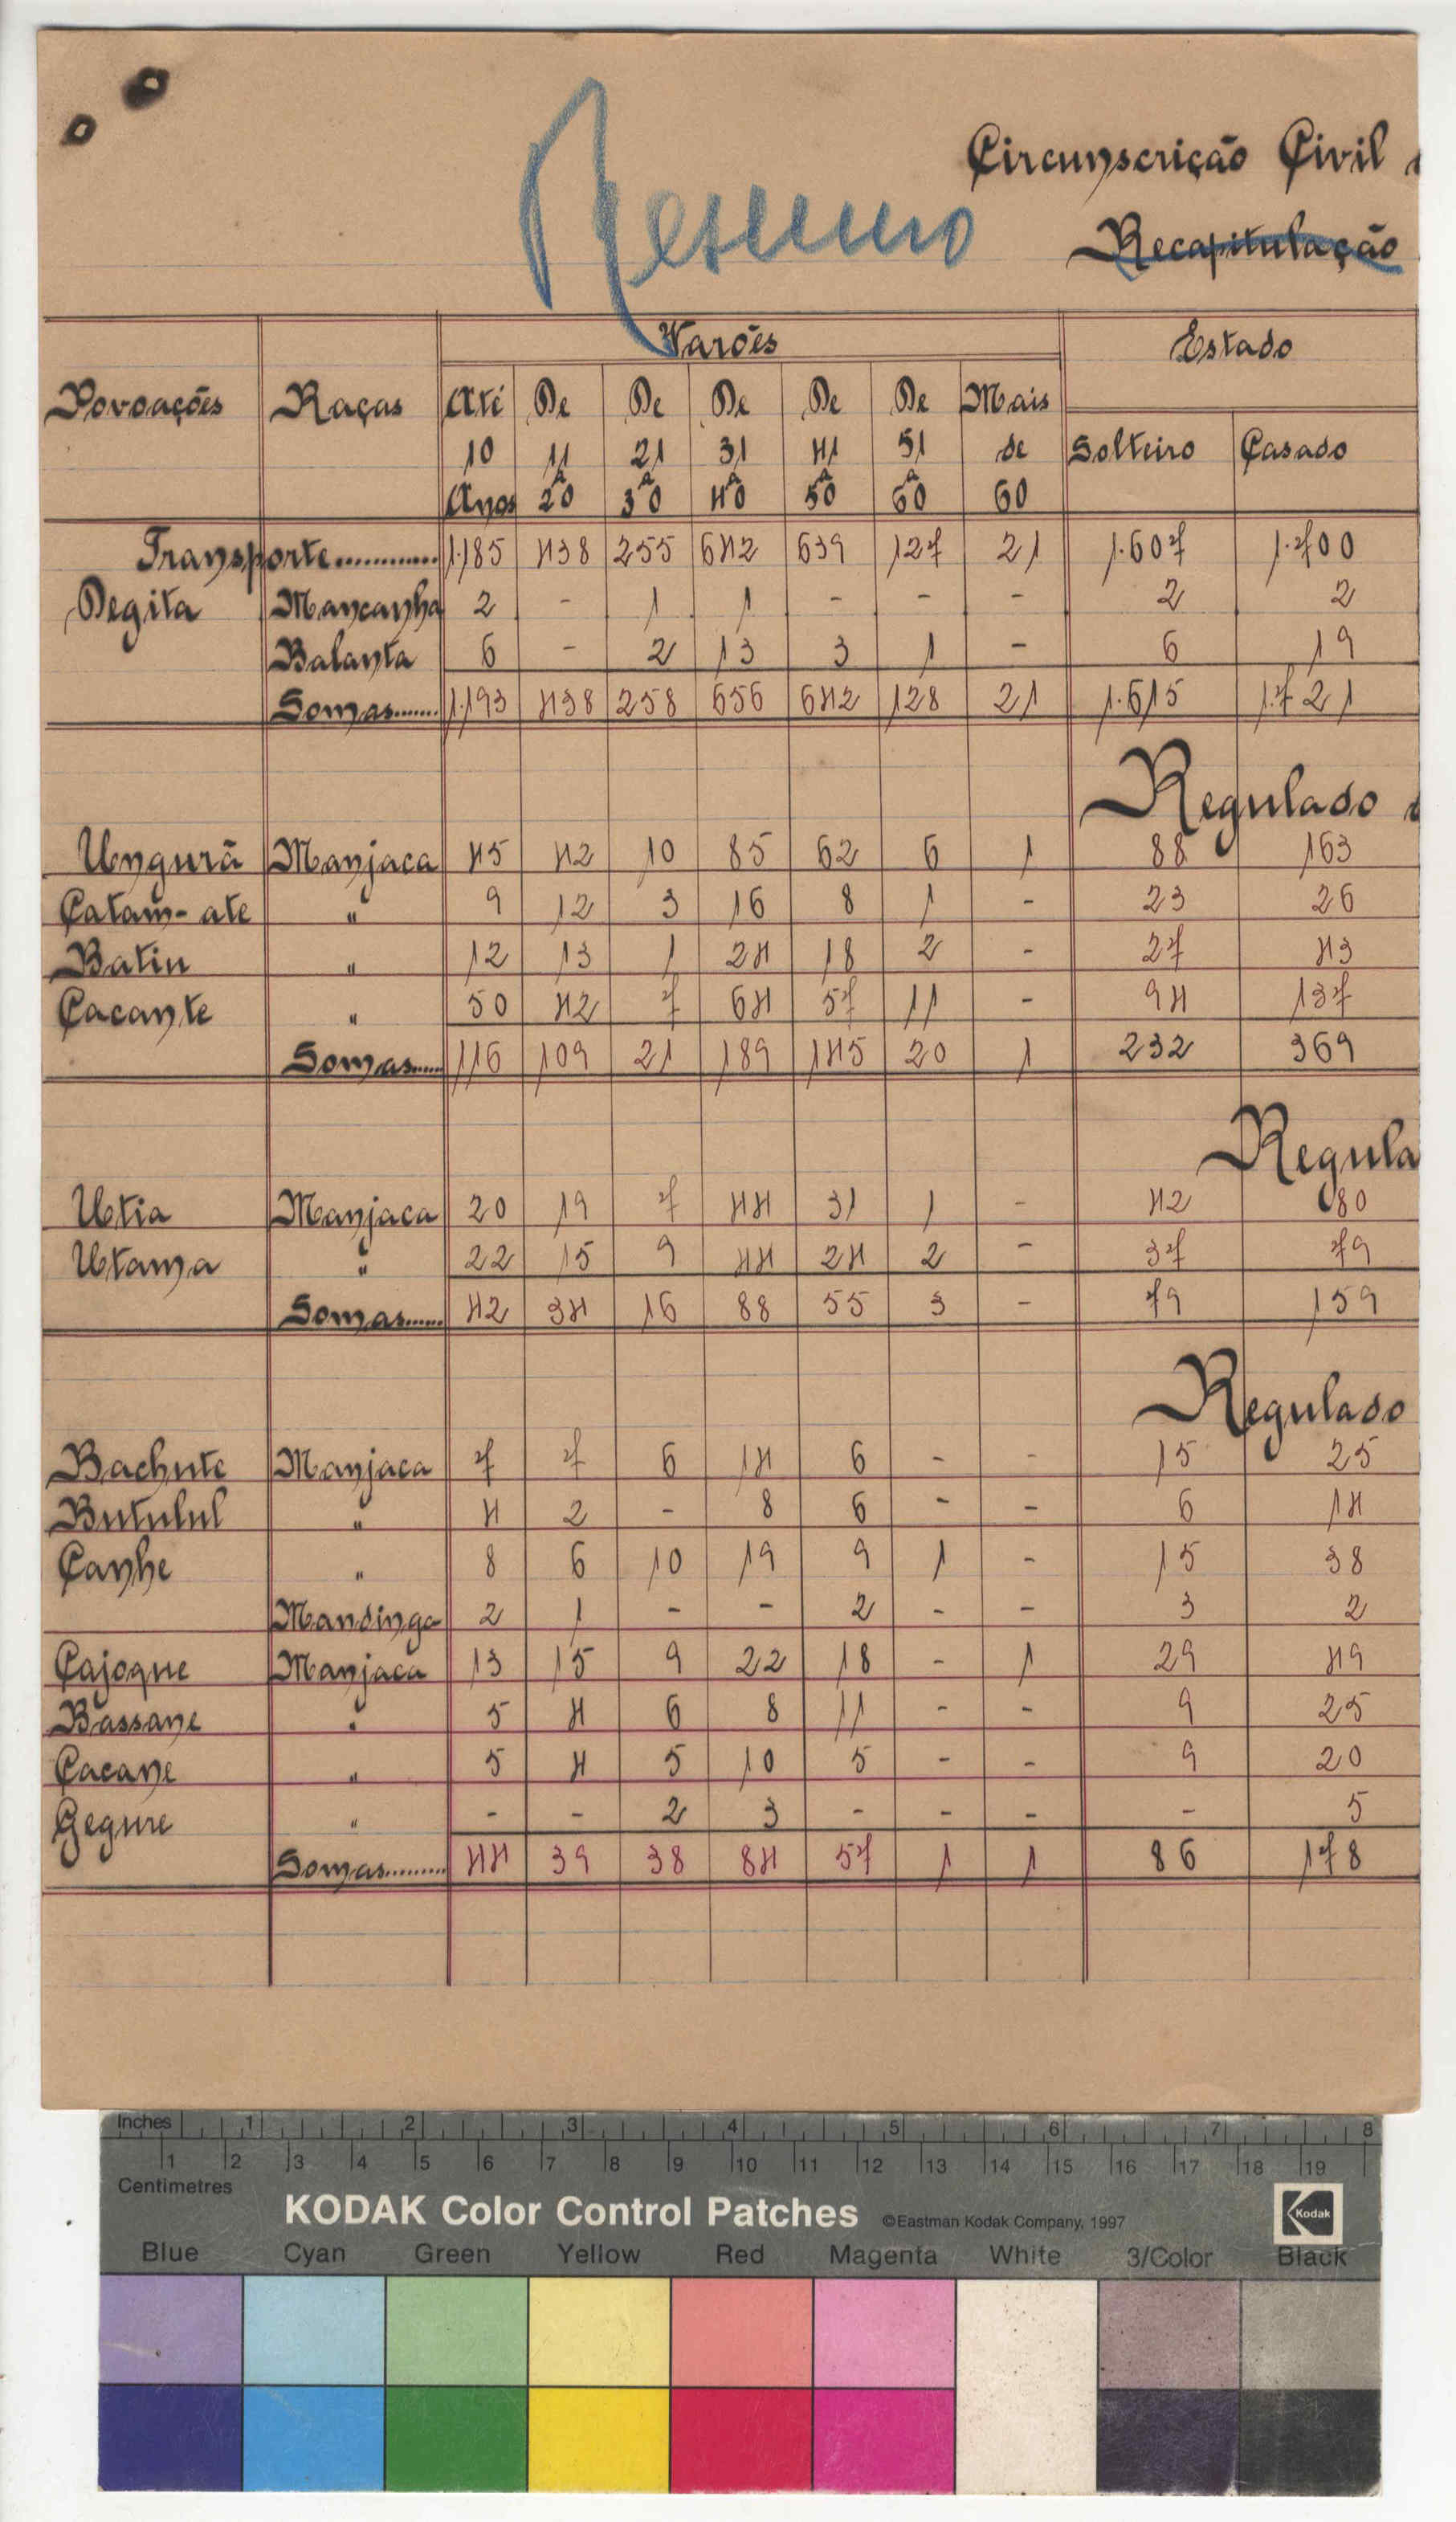 Circunscrição Civil
Resumo
Recapitulação
Povoações Raças Varões Estado
Até De De De De De Mais
10 11 21 31 41 51 de Solteiro Casado
Anos a 20 a 30 a 40 a 50 a 60 60
Transporte............ 1.185 438 255 642 639 127 21 1.607 1.700
Degita Mancanha 2 - 1 1 - - - 2 2
Balanta 6 - 2 13 3 1 - 6 19
Somas....... 1.193 438 258 656 642 128 21 1.615 1.721
Regulado
Ungurã Manjaca 45 42 10 85 62 6 1 88 163
Catam-ate " 9 12 3 16 8 1 - 23 26
Batin " 12 13 1 24 18 2 - 27 43
Cacante " 50 42 7 64 57 11 - 94 137
Somas..... 116 109 21 189 145 20 1 232 369
Regula
Utia Manjaca 20 19 7 44 31 1 - 42 80
Utama " 22 15 9 44 24 2 - 37 79
Somas...... 42 34 16 88 55 3 - 79 159
Regulado
Bachute Manjaca 7 7 6 14 6 - - 15 25
Butulul " 4 2 - 8 6 - - 6 14
Canhe " 8 6 10 19 9 1 - 15 38
Mandinga 2 1 - - 2 - - 3 2
Cajoque Manjaca 13 15 9 22 18 - 1 29 49
Bassane " 5 4 6 8 11 - - 9 25
Cacane " 5 4 5 10 5 - - 9 20
Gegure " - - 2 3 - - - - 5
Somas......... 44 39 38 84 57 1 1 86 178
Inches 1 2 3 4 5 6 7 8
1 2 3 4 5 6 7 8 9 10 11 12 13 14 15 16 17 18 19
Centimetres
KODAK Color Control Patches ©Eastman Kodak Company, 1997 Kodak
Blue Cyan Green Yellow Red Magenta White 3/Color Black